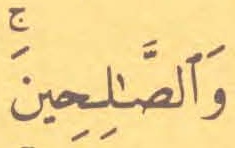 وَٱلصَّـٰلِحِينَۚ